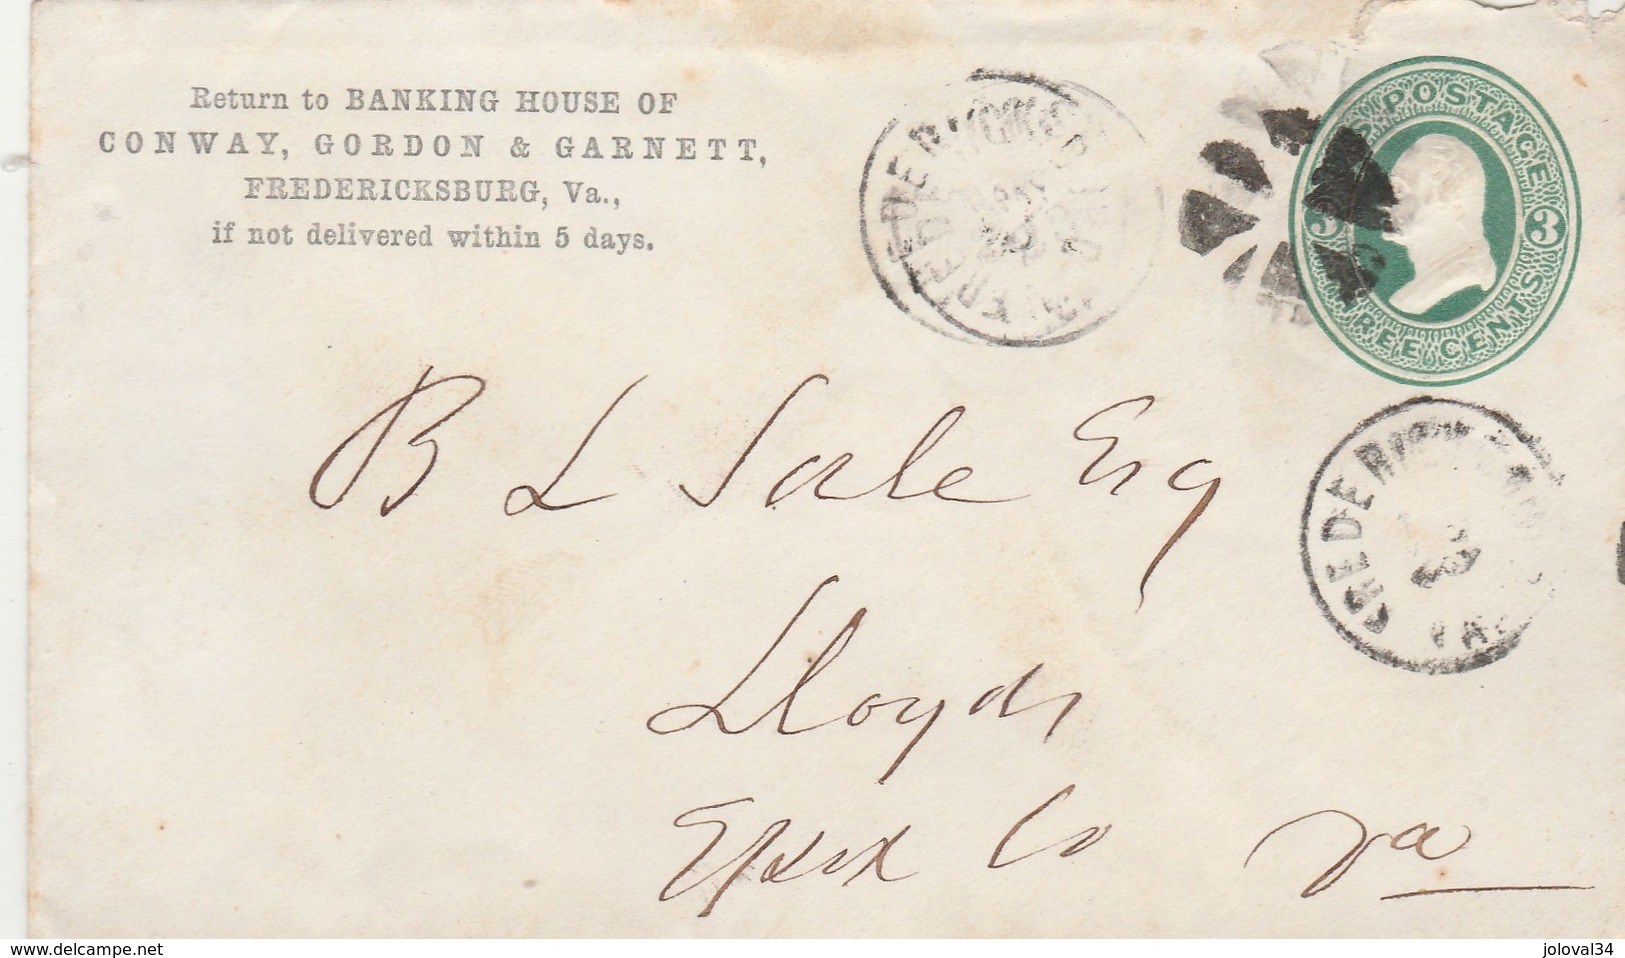 Return to BANKING HOUSE OF
CONWAY, GORDON & GARNETT,
FREDERICKSBURG, Va.,
if not delivered within 5 days.
FREDERICKSBURG
POSTAGE
3 3
THREE CENTS
B L Sale Esq
FREDERICKSBURG
VA
Lloyds
Essex Co Va
www.delcampe.net
joloval34